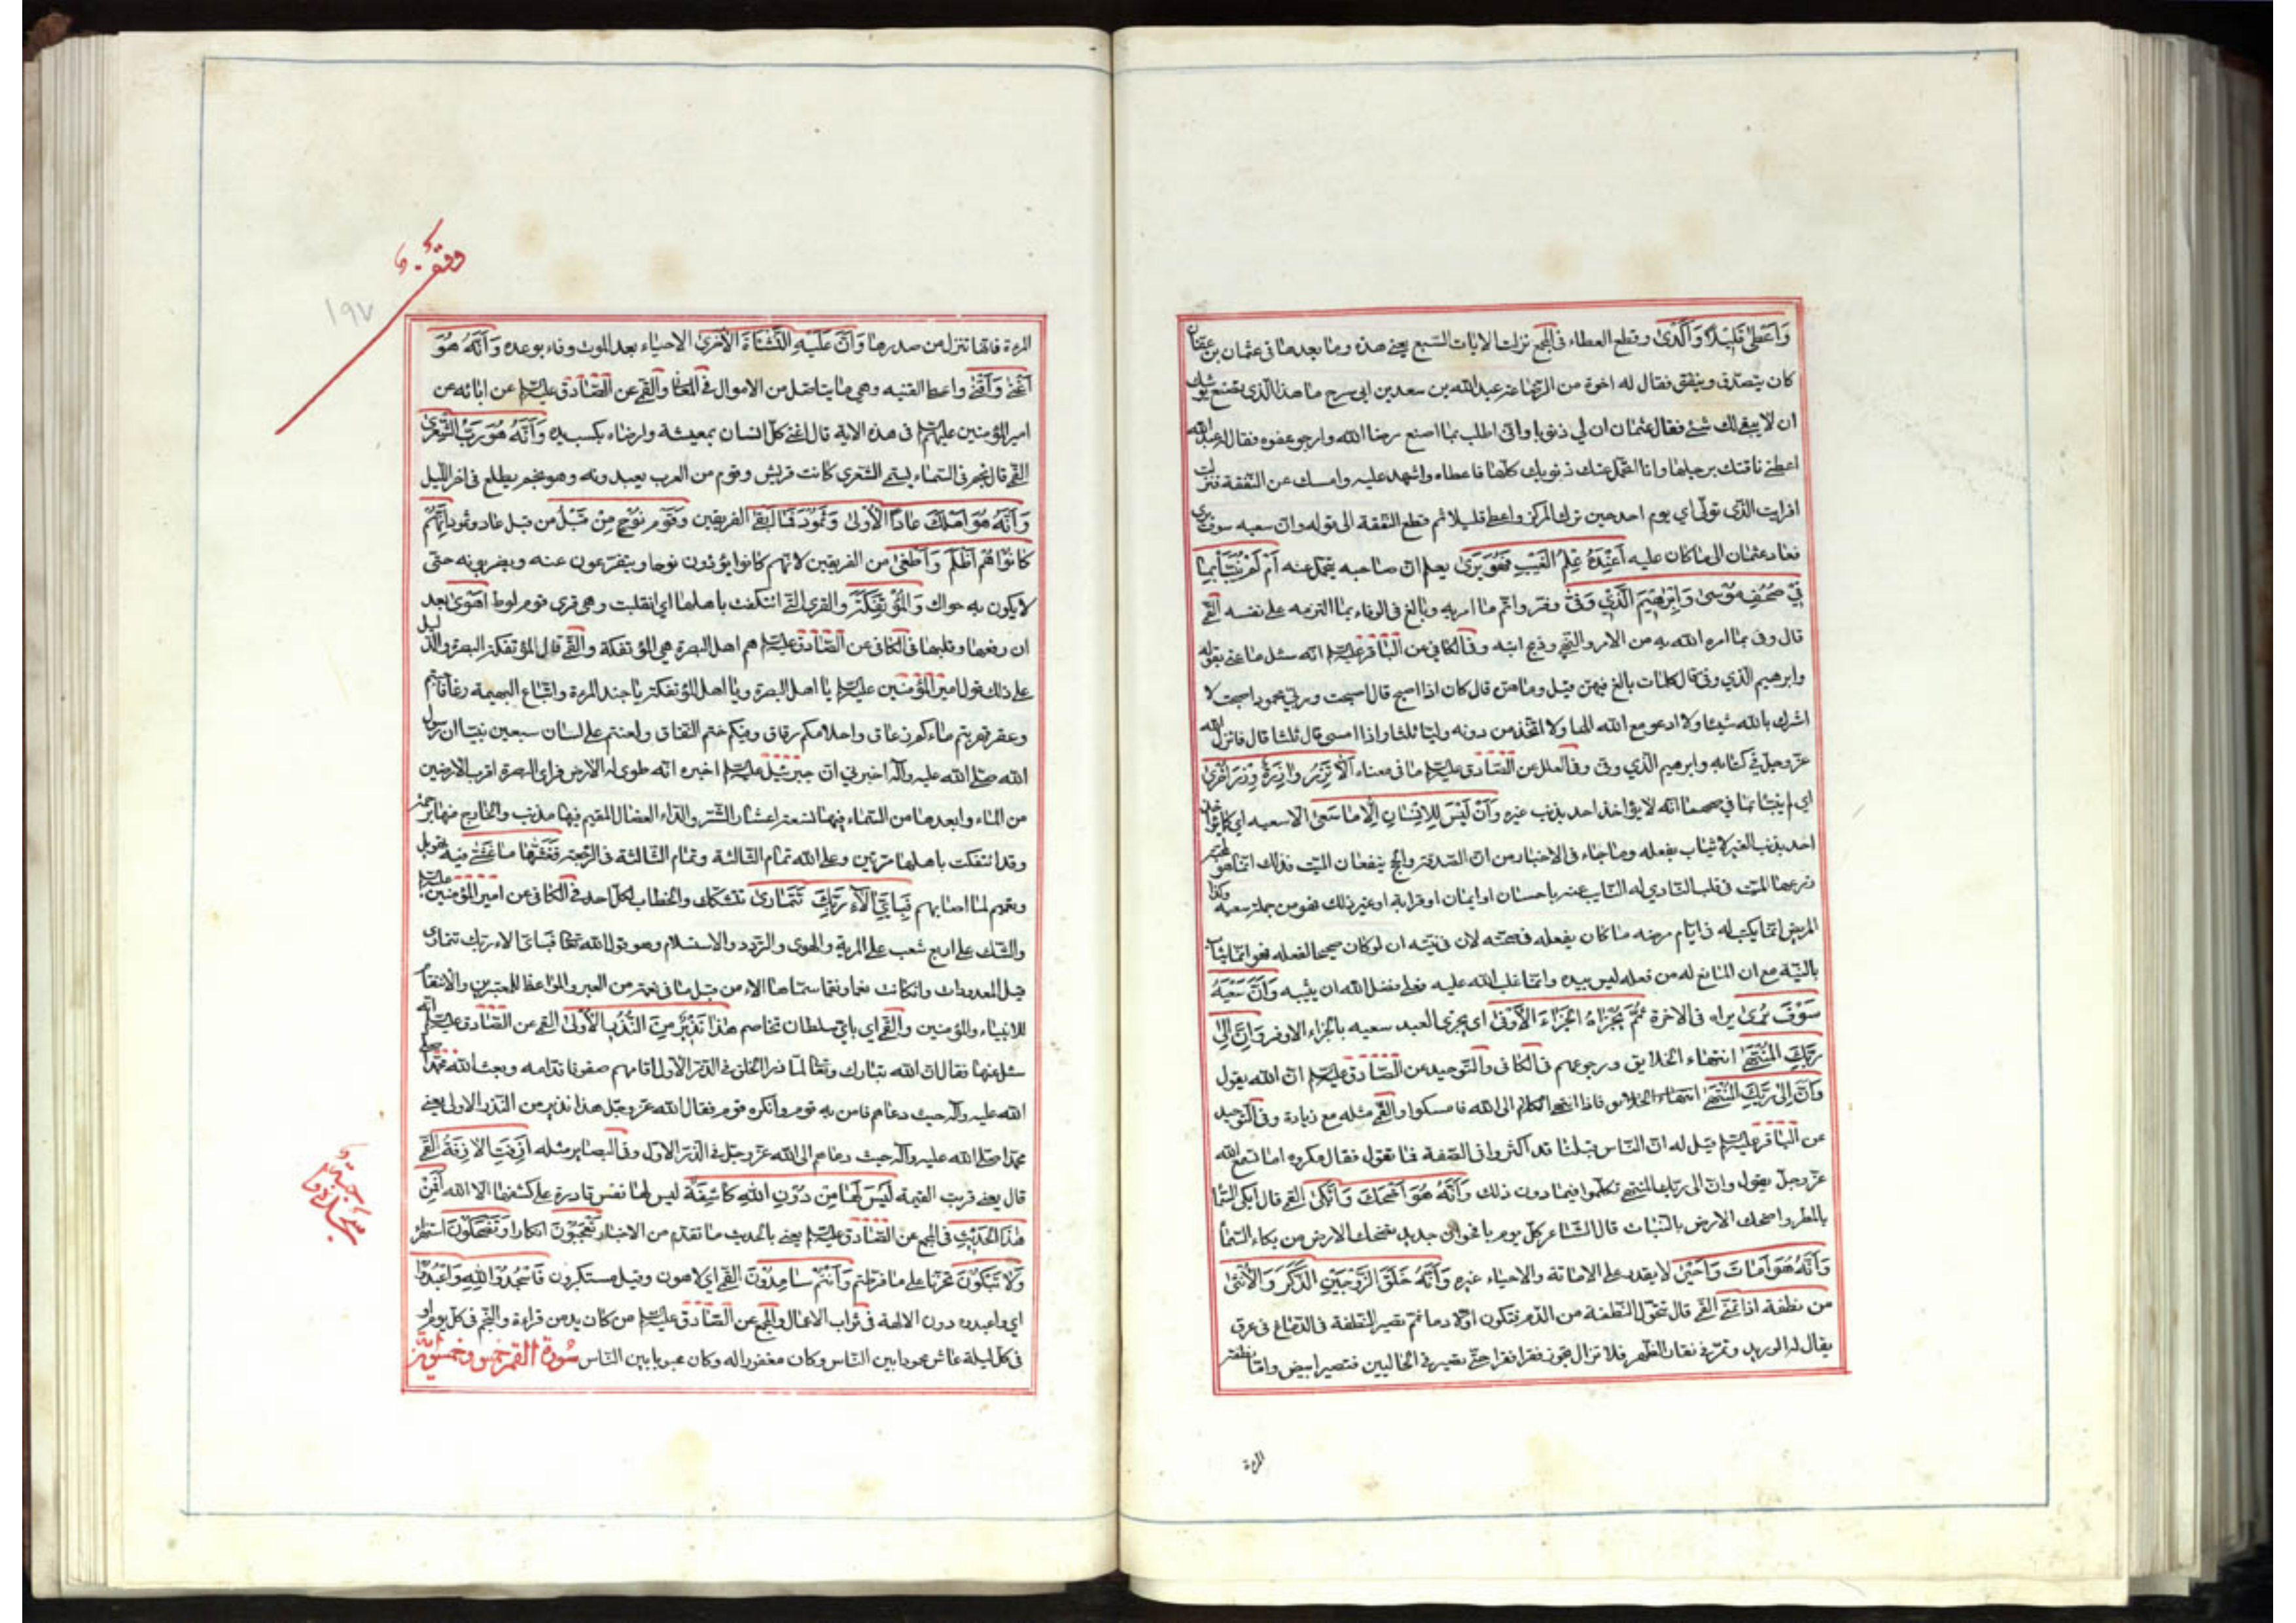 وَأَعْطىٰ قَلِيلًا وَأَكْدىٰ وقطع العطاء في المجمع نزلت الايات السّبع يعني هذه وما بعدها في عثمان بن عفان
كان يتصدّق وينفق فقال له اخوه من الرّضاعة عبد الله بن سعد بن ابي سرح ما هذا الّذي تصنع يوشك
ان لا يبقى لك شئ فقال عثمان ان لي ذنوبا وانّي اطلب بما اصنع رضا الله وارجو عفوه فقال له عبد الله
اعطني ناقتك برحلها وانا اتحمّل عنك ذنوبك كلّها فاعطاه واشهد عليه وامسك عن النّفقة فنزلت
افرايت الّذي تولّى اي يوم احد حين ترك المركز واعطى قليلا ثم قطع النّفقة الى قوله وان سعيه سوف يرى
فعاد عثمان الى ما كان عليه أَعِنْدَهُ عِلْمُ الْغَيْبِ فَهُوَ يَرىٰ يعلم انّ صاحبه يتحمّل عنه أَمْ لَمْ يُنَبَّأْ بِمٰا
فِي صُحُفِ مُوسىٰ وَإِبْرٰهِيمَ الَّذِي وَفّىٰ وفّر واتمّ ما امر به وبالغ في الوفاء بما التزمه على نفسه القمّي
قال وفى بما امره الله به من الامر والنّهي وذبح ابنه وفي الكافي عن الباقر عليه السلام انّه سئل ما عنى بقوله
وابرهيم الّذي وفّى قال كلمات بالغ فيهنّ قيل وما هنّ قال كان اذا اصبح قال اصبحت وربّي محمود اصبحت لا
اشرك بالله شيئا ولا ادعو مع الله الها ولا اتّخذ من دونه وليّا ثلثا واذا امسى قال ثلثا قال فانزل الله
عزّ وجلّ في كتابه وابرهيم الّذي وفّى وفي العلل عن الصّادق عليه السلام ما في معناه أَلّٰا تَزِرُ وٰازِرَةٌ وِزْرَ أُخْرىٰ
اي لم ينبّأ بما في صحفهما انّه لا يؤاخذ احد بذنب غيره وَأَنْ لَيْسَ لِلْإِنْسٰانِ إِلّٰا مٰا سَعىٰ الّا سعيه اي كما لا يؤاخذ
احد بذنب الغير لا يثاب بفعله وما جاء في الاخبار من انّ الصّدقة والحجّ ينفعان الميّت فذلك انّما هو لمحبّة
زرعها الميّت في قلب النّادي له النّايب عنه باحسان او ايمان او قرابة او غير ذلك فهو من جملة سعيه وكذا
المريض انّما يكتب له في ايّام مرضه ما كان يفعله في صحّته لان في نيّته ان لو كان صحيحا لفعله فهو انّما يثاب
بالنّيّة مع ان المانع له من فعله ليس بيده وانّما غلب الله عليه فعلى فضل الله ان يثيبه وَأَنَّ سَعْيَهُ
سَوْفَ يُرىٰ يراه في الاخرة ثُمَّ يُجْزٰاهُ الْجَزٰاءَ الْأَوْفىٰ اي يجزى العبد سعيه بالجزاء الاوفر وَأَنَّ إِلىٰ
رَبِّكَ الْمُنْتَهىٰ انتهاء الخلايق ورجوعهم في الكافي والتّوحيد عن الصّادق عليه السلام انّ الله يقول
وَأَنَّ إِلىٰ رَبِّكَ الْمُنْتَهىٰ فاذا انتهى الكلام الى الله فامسكوا والقمّي مثله مع زيادة وفي التوحيد
عن الباقر عليه السلام قيل له انّ النّاس قبلنا قد اكثروا في الصّفة فما تقول فقال مكروه اما تسمع الله
عزّ وجلّ يقول وانّ الى ربّك المنتهى تكلّموا فيما دون ذلك وَأَنَّهُ هُوَ أَضْحَكَ وَأَبْكىٰ القمّي قال ابكى السّماء
بالمطر واضحك الارض بالنّبات قال الشّاعر كلّ يوم باقحوان جديد تضحك الارض من بكاء السّماء
وَأَنَّهُ هُوَ أَمٰاتَ وَأَحْيىٰ لا يقدر على الاماتة والاحياء غيره وَأَنَّهُ خَلَقَ الزَّوْجَيْنِ الذَّكَرَ وَالْأُنْثىٰ
من نطفة اذا تمنى القمّي قال تتحوّل النّطفة من الدّم فتكون اوّلا دما ثمّ تصير النّطفة في الدّماغ في عرق
يقال له الوريد وتمرّ في فقار الظّهر فلا تزال تجوز فقرا فقرا حتّى تصير في الحالبين فتصير ابيض وامّا نطفة
المرءة
وقف
١٩٧
المرءة فانّها تنزل من صدرها وَأَنَّ عَلَيْهِ النَّشْأَةَ الْأُخْرىٰ الاحياء بعد الموت وفاء بوعده وَأَنَّهُ هُوَ
أَغْنىٰ وَأَقْنىٰ واعطى القنيه وهي ما يتاثّل من الاموال في المعاني والقمّي عن الصّادق عليه السلام عن ابائه عن
امير المؤمنين عليهم السلام في هذه الاية قال اغنى كلّ انسان بمعيشة وارضاه بكسب يده وَأَنَّهُ هُوَ رَبُّ الشِّعْرىٰ
القمّي قال نجم في السّماء يسمّى الشّعرى كانت قريش وقوم من العرب يعبدونه وهو نجم يطلع في اخر اللّيل
وَأَنَّهُ هُوَ أَهْلَكَ عٰادًا الْأُولىٰ وَثَمُودَ فَمٰا أَبْقىٰ الفريقين وَقَوْمَ نُوحٍ مِنْ قَبْلُ من قبل عاد وثمود إِنَّهُمْ
كٰانُوا هُمْ أَظْلَمَ وَأَطْغىٰ من الفريقين لانّهم كانوا يؤذون نوحا وينفّرعون عنه ويضربونه حتى
لا يكون به حراك وَالْمُؤْتَفِكَةَ والقرى الّتي ائتفكت باهلها اي انقلبت وهي قرى قوم لوط أَهْوىٰ بعد
ان رفعها وقلبها في الكافي عن الصّادق عليه السلام هم اهل البصرة هي المؤتفكة والقمّي قال المؤتفكة البصرة والدّليل
على ذلك قول امير المؤمنين عليه السلام يا اهل البصرة ويا اهل المؤتفكة يا جند المرءة واتباع البهيمة رغا فاجبتم
وعقر فهربتم ماءكم زعاق واحلامكم رقاق وفيكم ختم النّفاق ولعنتم على لسان سبعين نبيّا ان رسول
الله صلّى الله عليه وآله اخبرني انّ جبرئيل عليه السلام اخبره انّه طوى له الارض فراى البصرة اقرب الارضين
من الماء وابعدها من السّماء فيها تسعة اعشار الشّر والدّاء العضال المقيم فيها مذنب والخارج منها برحمة
وقد ائتفكت باهلها مرّتين وعلى الله تمام الثّالثة وتمام الثّالثة في الرّجعة فَغَشّٰاهٰا مٰا غَشّىٰ فيه تهويل
وتعميم لما اصابهم فَبِأَيِّ آلٰاءِ رَبِّكَ تَتَمٰارىٰ تتشكّك والخطاب لكلّ احد في الكافي عن امير المؤمنين عليه السلام
والشّك على اربع شعب على المرية والهوى والتردّد والاستسلام وهو قول الله تعالى فبايّ الاء ربّك تتمارى
قيل المعدودات وان كانت نعما ونقما سمّاها الاء من قبل ما في نقمه من العبر والمواعظ للمعتبرين والانتقام
للانبياء والمؤمنين والقمّي اي بايّ سلطان تخاصم هٰذٰا نَذِيرٌ مِنَ النُّذُرِ الْأُولىٰ القمّي عن الصّادق عليه السلام انّه
سئل عنها فقال انّ الله تبارك وتعالى لمّا ذرأ الخلق في الذّرّ الاوّل اقامهم صفوفا قدّامه وبعث الله محمّدا صلّى
الله عليه وآله حيث دعاهم فامن به قوم وانكره قوم فقال الله عزّ وجلّ هذا نذير من النّذر الاولى يعني
محمّدا صلّى الله عليه وآله حيث دعاهم الى الله عزّ وجلّ في الذّرّ الاوّل وفي البصاير مثله أَزِفَتِ الْآزِفَةُ القمّي
قال يعني قربت القيمة لَيْسَ لَهٰا مِنْ دُونِ اللهِ كٰاشِفَةٌ ليس لها نفس قادرة على كشفها الّا الله أَفَمِنْ
هٰذَا الْحَدِيثِ في المجمع عن الصّادق عليه السلام يعني بالحديث ما تقدّم من الاخبار تَعْجَبُونَ انكارا وَتَضْحَكُونَ استهزاء
وَلٰا تَبْكُونَ تحزّنا على ما فرّطتم وَأَنْتُمْ سٰامِدُونَ القمّي اي لاهون وقيل مستكبرون فَاسْجُدُوا لِلّٰهِ وَاعْبُدُوا
اي واعبدوه دون الالهة في ثواب الاعمال والمجمع عن الصّادق عليه السلام من كان يدمن قراءة والنّجم في كلّ يوم او
في كلّ ليلة عاش محمودا بين النّاس وكان مغفورا له وكان محبوبا بين النّاس سُورة القمر خمس وخمسون آية